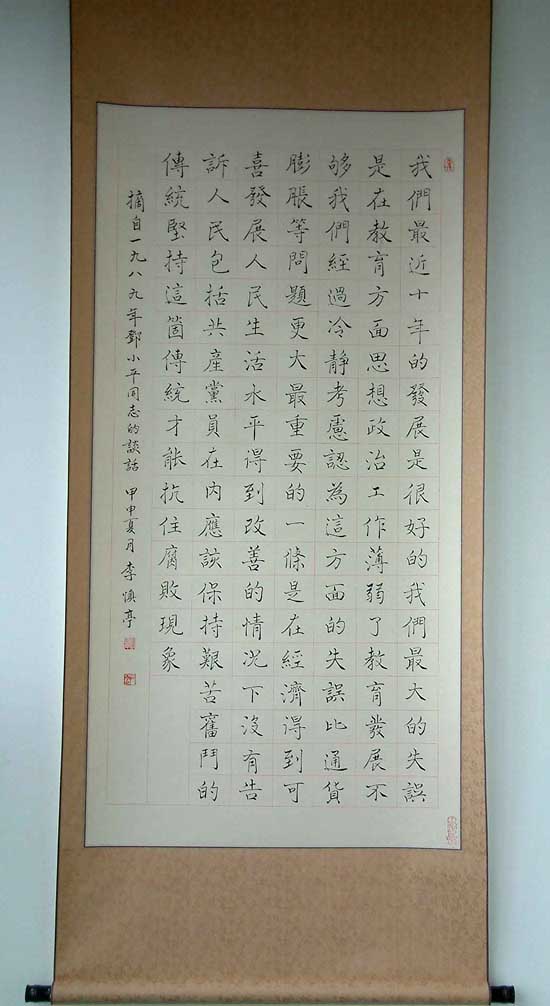 我們最近十年的發展是很好的我們最大的失誤
是在教育方面思想政治工作薄弱了教育發展不
够我們經過冷靜考慮認為這方面的失誤比通貨
膨脹等問題更大最重要的一條是在經濟得到可
喜發展人民生活水平得到改善的情況下沒有告
訴人民包括共產黨員在内應該保持艱苦奮鬥的
傳統堅持這箇傳統才能抗住腐敗現象
摘自一九八九年鄧小平同志的談話 甲申夏月 李慎亭